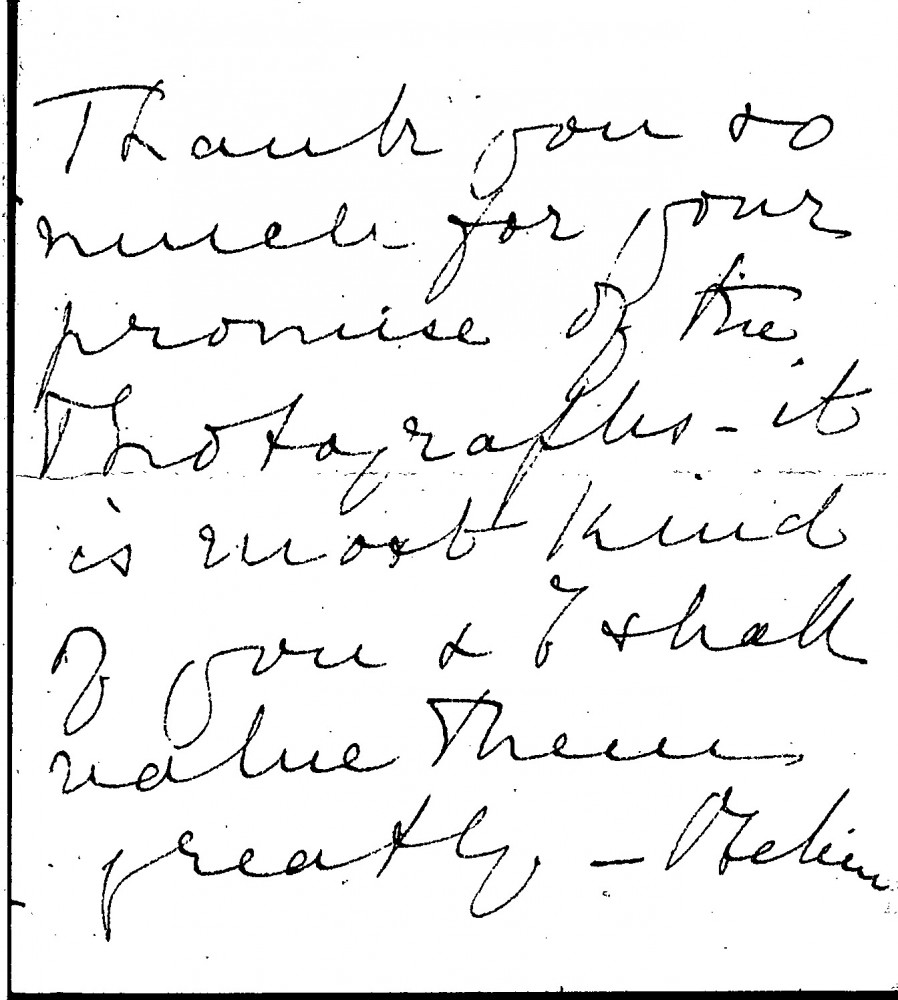 Thank you so
much for your
promise of the
Photographs - it
is most kind
of you & I shall
value them
greatly -